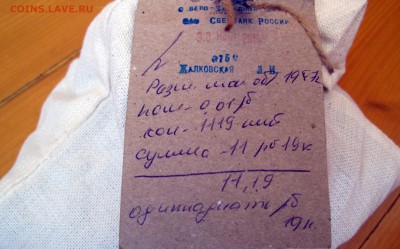 COINS.LAVE.RU
СБЕРБАНК РОССИИ
0750
ЖАЛКОВСКАЯ Л.И.
Разм. мон. об. 1997г
ном - 0,01 рб
кол - 1119 шт
сумма - 11 рб 19к
11,19
одиннадцать рб
19к.